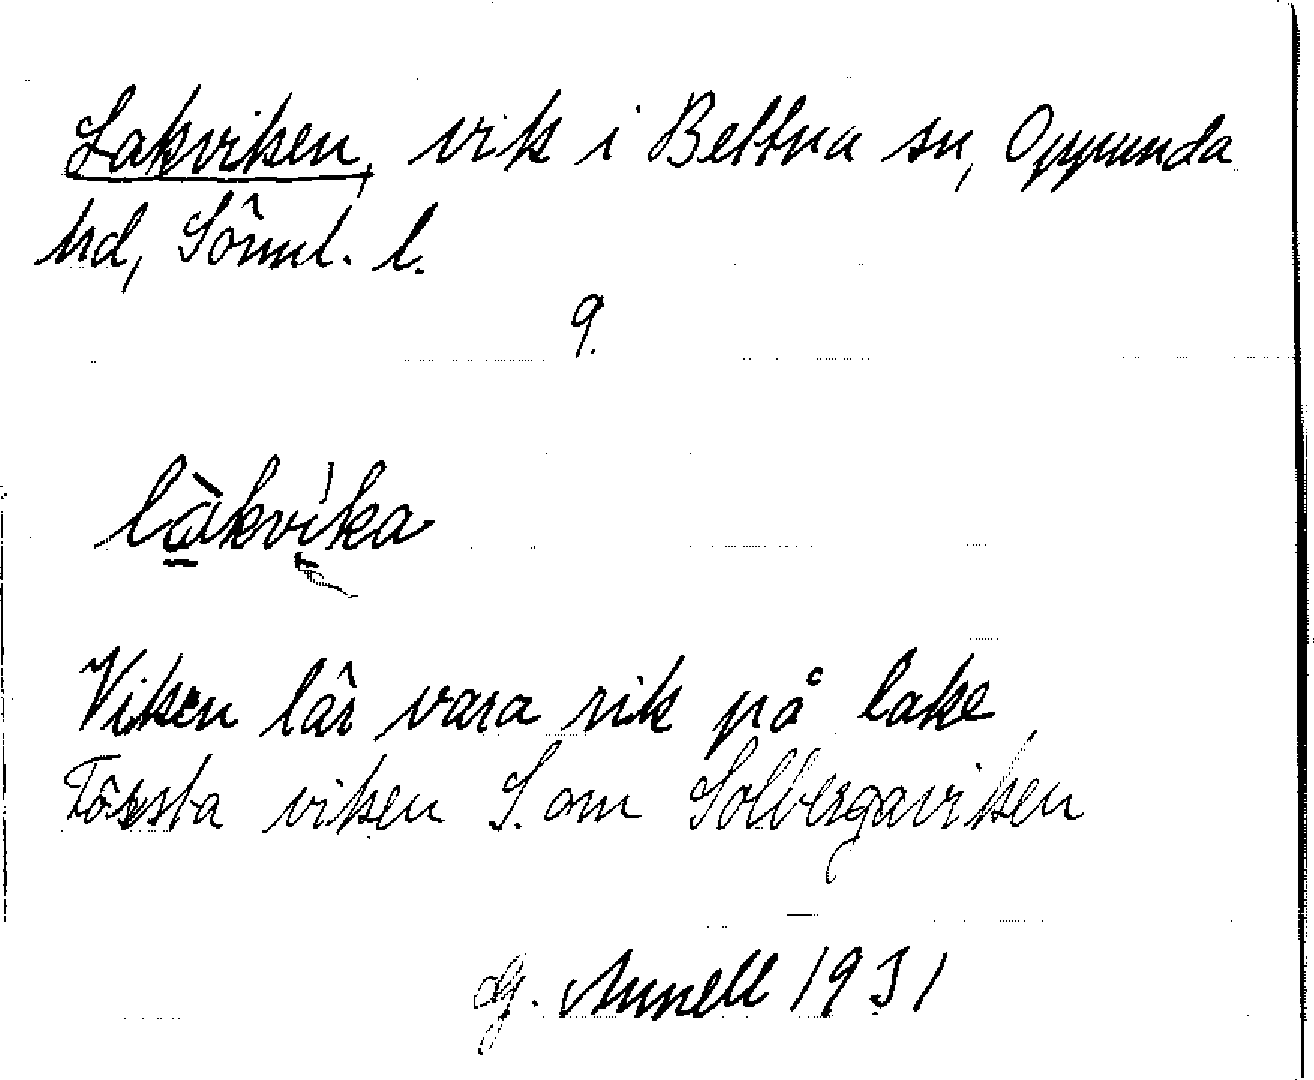 Lakviken, vik i Bettna sn, Oppunda
hd, Söml. l.
9.
làkvìka
Viken lär vara rik på lake
Första viken S. om Solbergaviken
G. Annell 1931